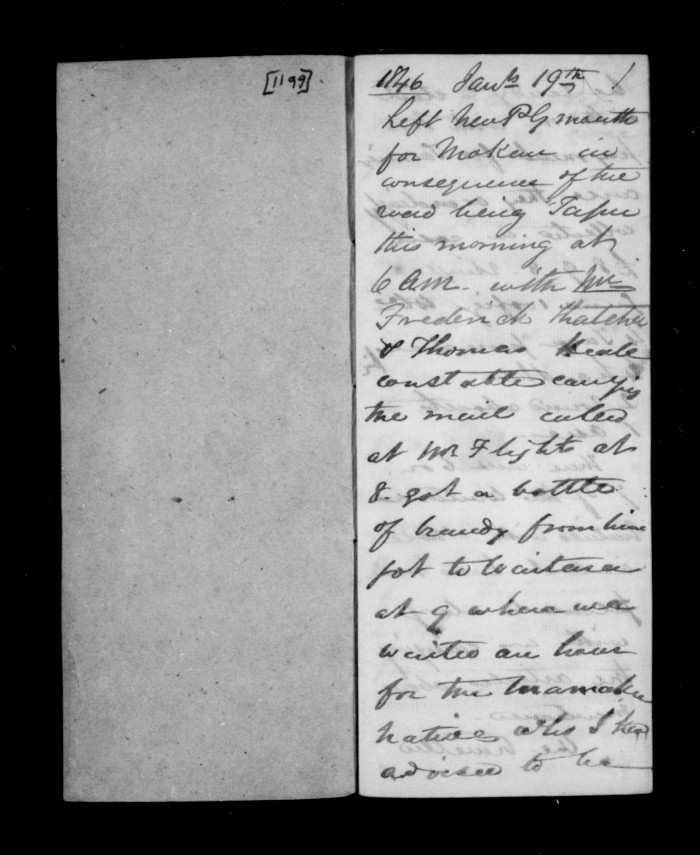 [1199].
1846 Jany 19th /
Left New Plymouth
for Mokau in
consequence of the
road being Tapu
this morning at
6 AM. with Mr
Frederick Thatcher
& Thomas Heale
constable carryg
the mail called
at Mr Flights at
8. got a bottle
of brandy from him
got to Waitara
at 9 where we
waited an hour
for the
natives who I had
advised to be